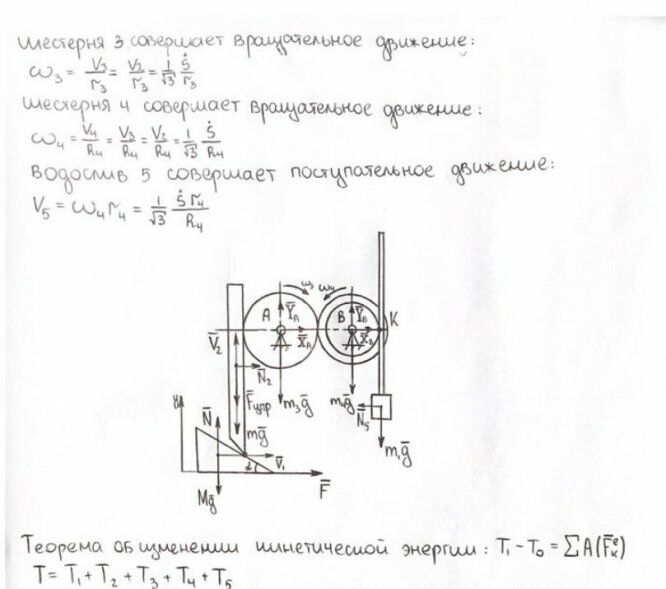 шестерня 3 совершает вращательное движение:
ω₃ = V₃/r₃ = V₂/r₃ = 1/√3 Ṡ/r₃
шестерня 4 совершает вращательное движение:
ω₄ = V₄/R₄ = V₃/R₄ = V₂/R₄ = 1/√3 Ṡ/R₄
Водослив 5 совершает поступательное движение:
V₅ = ω₄r₄ = 1/√3 Ṡr₄/R₄
ω₃ ω₄
A Y̅_A B Y̅_B K
V̅₂ X̅_A X̅_B
N̅₂
F̅упр m₃g̅ m₄g̅ N̅₅
y N̅ mg̅ m₁g̅
α V̅₁
Mg̅ F̅
Теорема об изменении кинетической энергии: T₁ - T₀ = ∑A(F̅ₖᵉ)
T = T₁ + T₂ + T₃ + T₄ + T₅